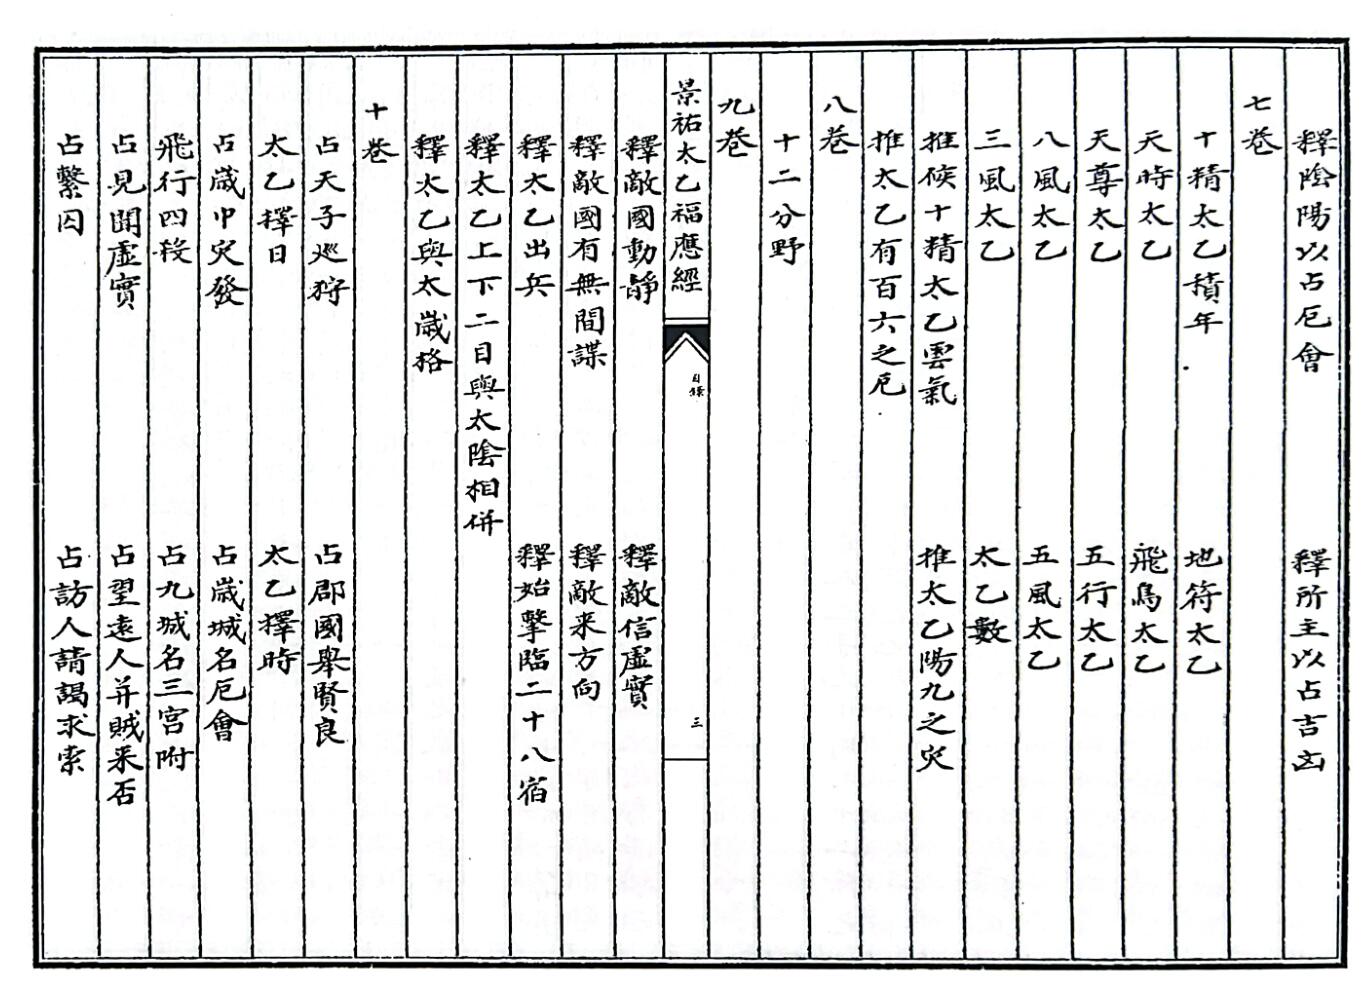 釋陰陽以占厄會　釋所主以占吉凶
七巻
十精太乙積年　地符太乙
天時太乙　飛鳥太乙
天尊太乙　五行太乙
八風太乙　五風太乙
三風太乙　太乙數
推候十精太乙雲氣　推太乙陽九之灾
推太乙有百六之厄
八巻
十二分野
九巻
景祐太乙福應經　目錄　三
釋敵國動靜　釋敵信虛實
釋敵國有無間諜　釋敵来方向
釋太乙出兵　釋始擊臨二十八宿
釋太乙上下二目與太陰相併
釋太乙與太歲格
十巻
占天子巡狩　占郡國舉賢良
太乙擇日　太乙擇時
占歲中灾發　占歲城名厄會
飛行四殺　占九城名三宮附
占見聞虛實　占望遠人并賊来否
占繫囚　占訪人請謁求索